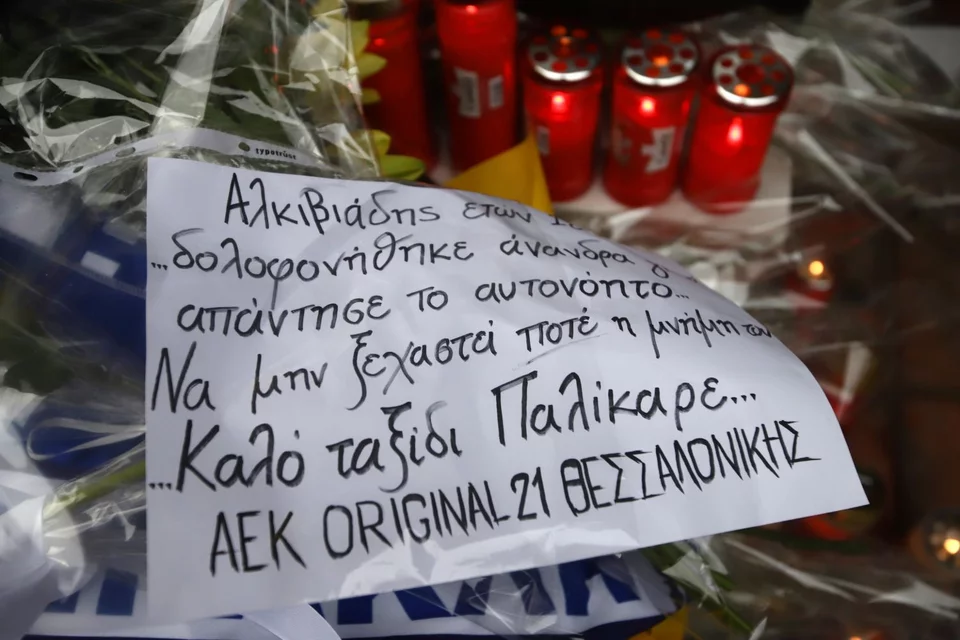 typotrust
Αλκιβιάδης ετών
...δολοφονήθηκε άνανδρα
απάντησε το αυτονόητο...
Να μην ξεχαστεί ποτέ η μνήμη του
...Καλό ταξίδι Παλίκαρε...
ΑΕΚ ORIGINAL 21 ΘΕΣΣΑΛΟΝΙΚΗΣ